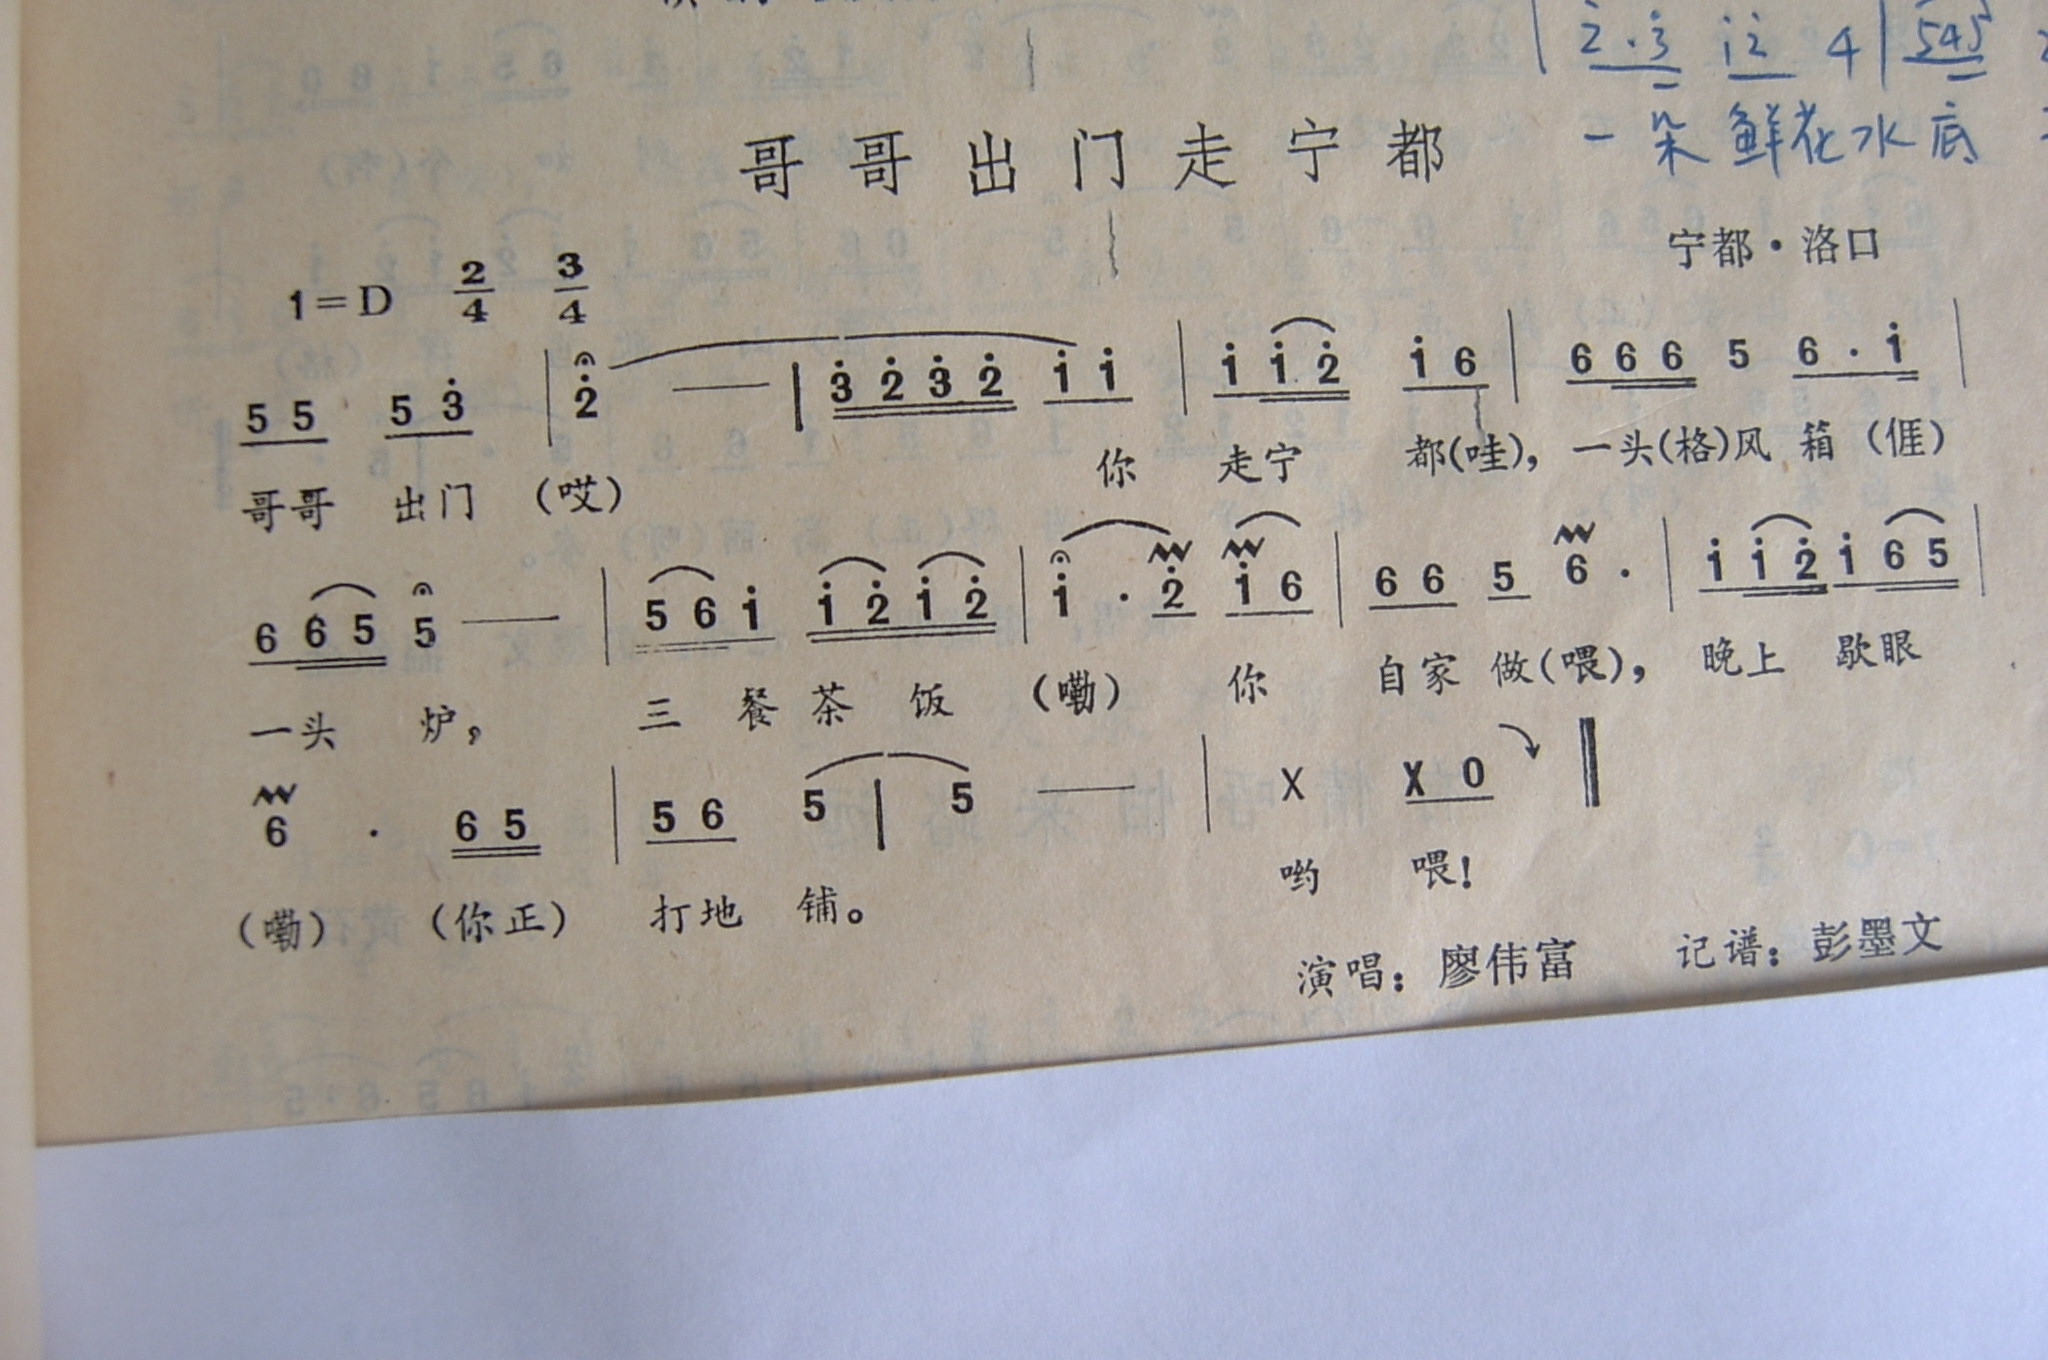 2̇·3̇ 1̇2̇ 4 | 545
一朵鲜花水底
哥哥出门走宁都
宁都·洛口
1=D 2/4 3/4
5 5 5 3̇ | 2̇ — | 3̇ 2̇ 3̇ 2̇ 1̇ 1̇ | 1̇ 1̇ 2̇ 1̇ 6 | 6 6 6 5 6 · 1̇ |
哥哥 出门 (哎) 你 走宁 都(哇), 一头(格)风 箱 (倕)
6 6 5 5 — | 5 6 1̇ 1̇ 2̇ 1̇ 2̇ | 1̇ · 2̇ 1̇ 6 | 6 6 5 6 · | 1̇ 1̇ 2̇ 1̇ 6 5 |
一头 炉, 三 餐 茶 饭 (嘞) 你 自家 做(喂), 晚上 歇眼
6 · 6 5 | 5 6 5 | 5 — | X X 0 ‖
(嘞) (你正) 打地 铺。 哟 喂!
演唱: 廖伟富 记谱: 彭墨文